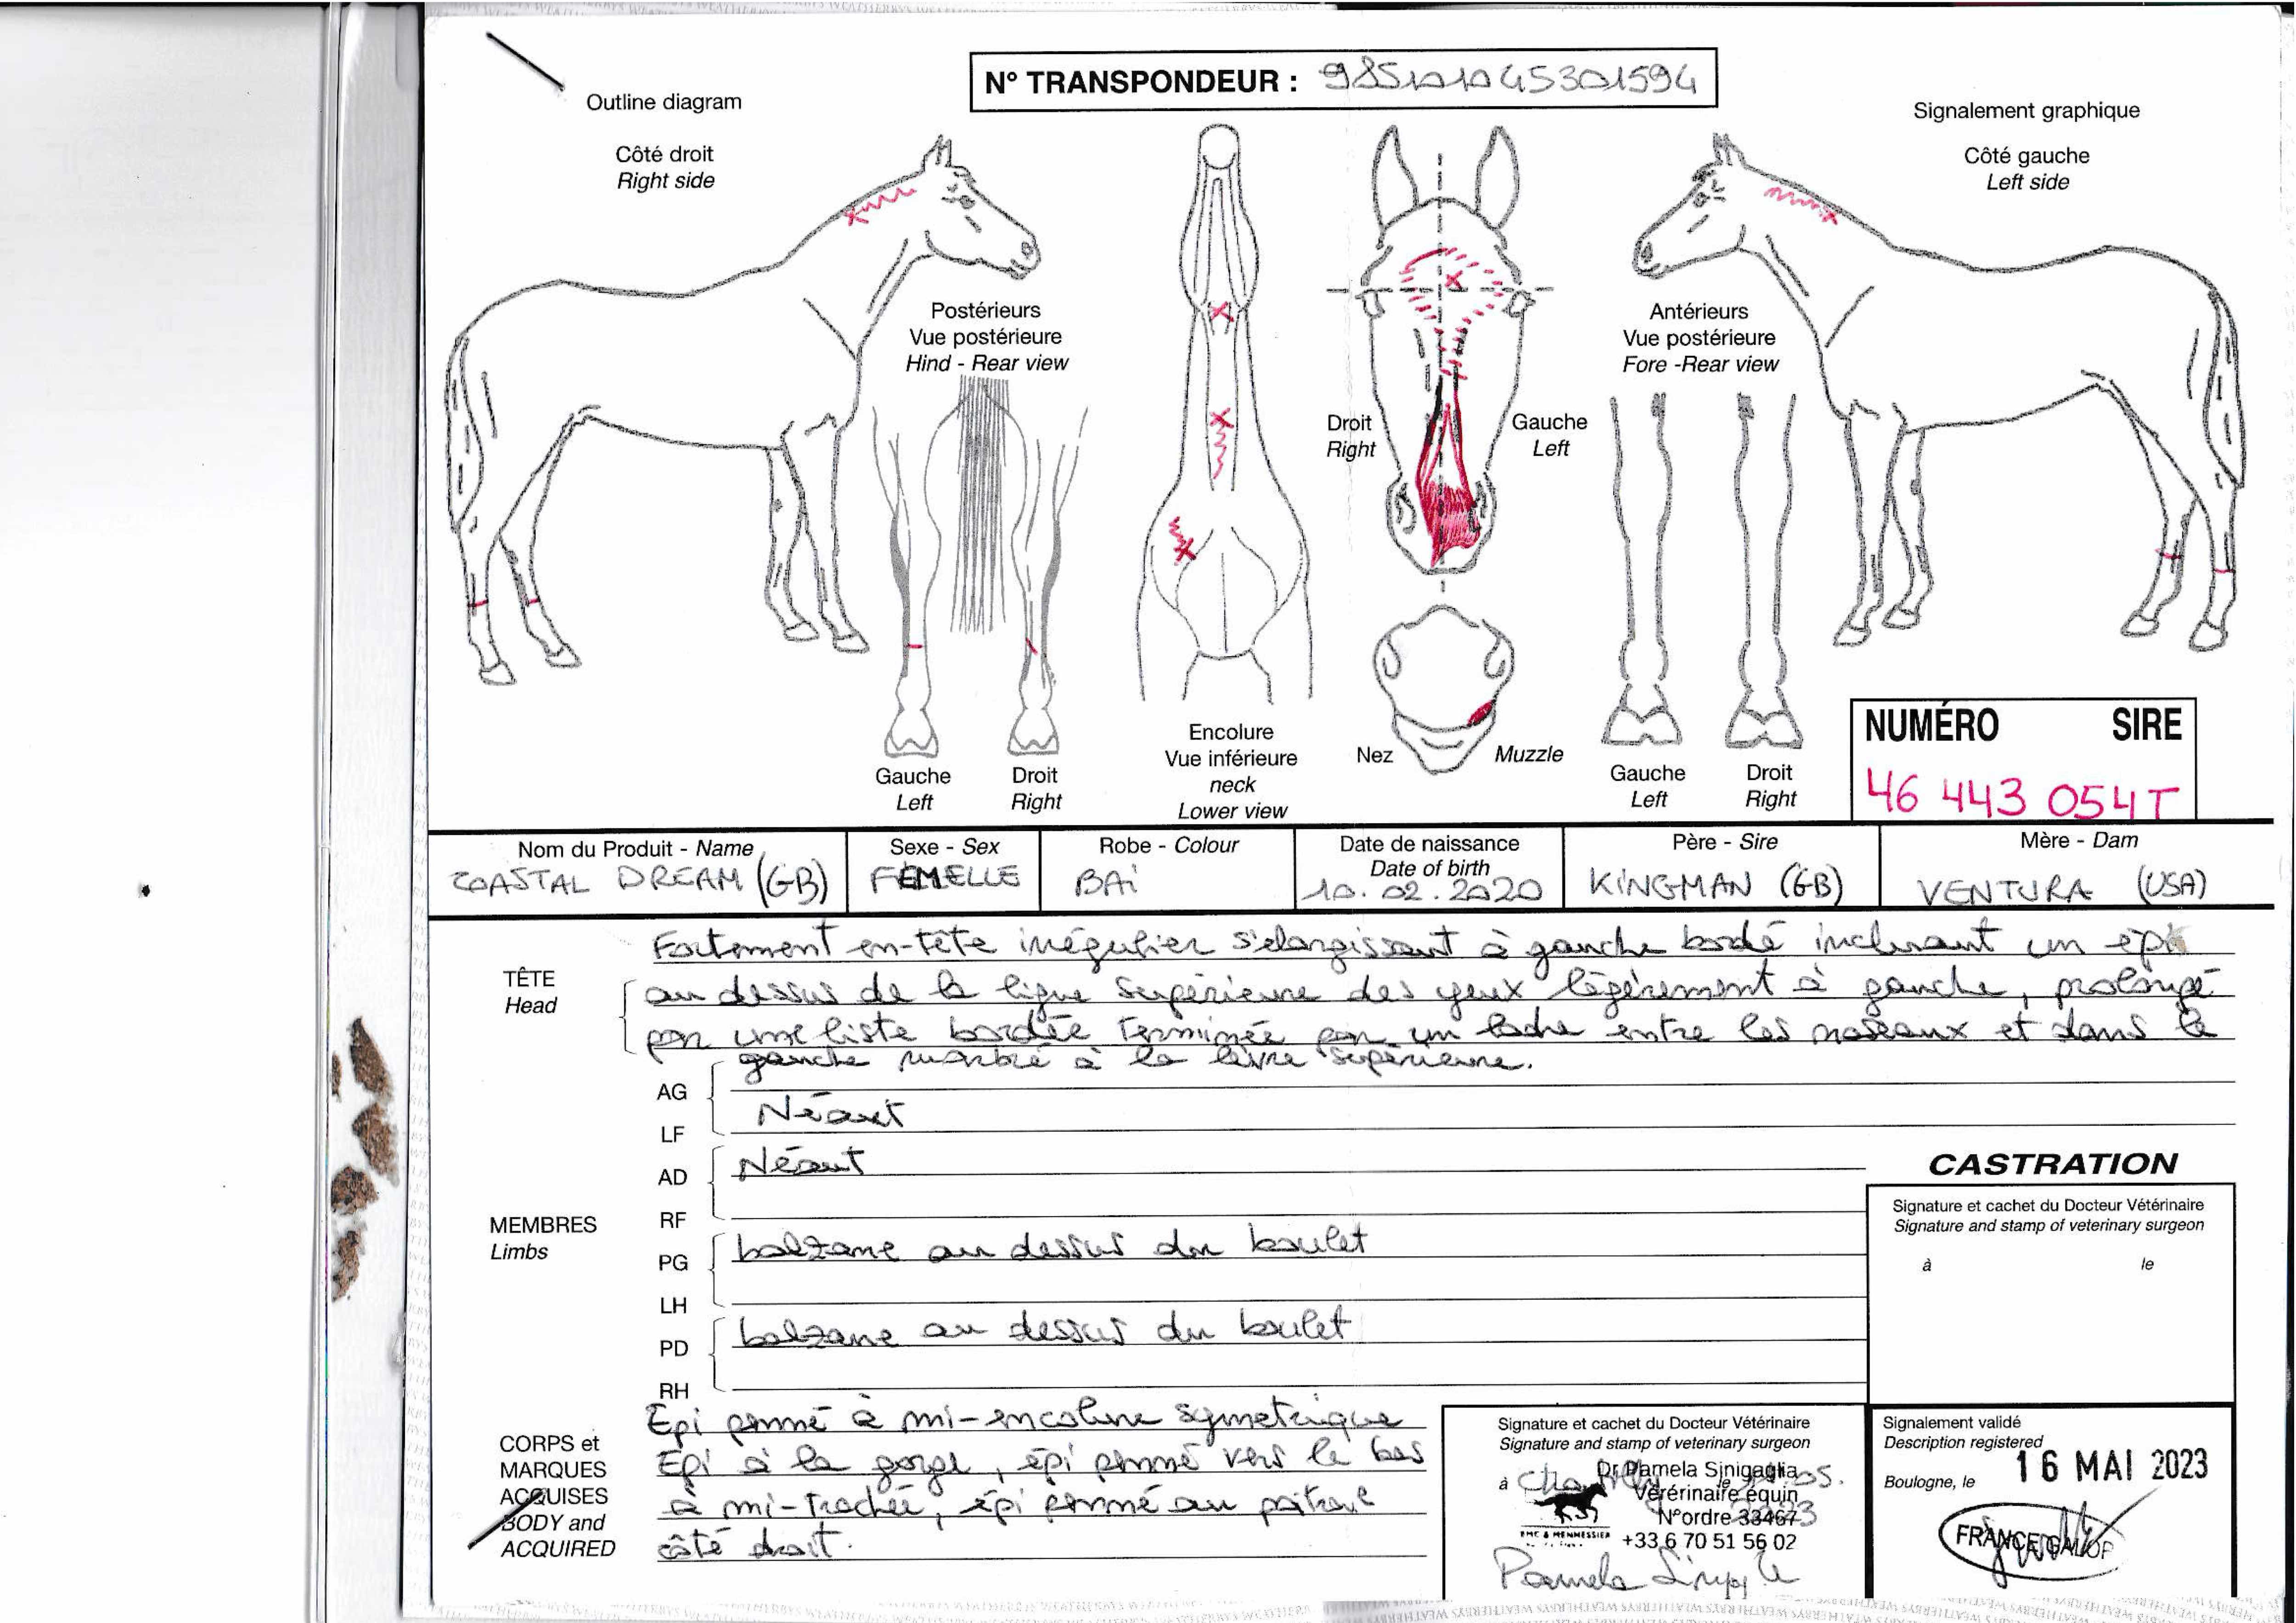 N° TRANSPONDEUR : 985101045301594
Outline diagram
Signalement graphique
Côté droit
Right side
Côté gauche
Left side
Postérieurs
Vue postérieure
Hind - Rear view
Antérieurs
Vue postérieure
Fore -Rear view
Droit
Right
Gauche
Left
Encolure
Vue inférieure
neck
Lower view
Nez
Muzzle
Gauche
Left
Droit
Right
Gauche
Left
Droit
Right
NUMÉRO SIRE
46 443 054T
Nom du Produit - Name
COASTAL DREAM (GB)
Sexe - Sex
FEMELLE
Robe - Colour
BAi
Date de naissance
Date of birth
10.02.2020
Père - Sire
KINGMAN (GB)
Mère - Dam
VENTURA (USA)
TÊTE
Head
Fortement en-tête irrégulier s'elargissant à gauche bordé incluant un épi
au dessus de la ligne supérieure des yeux légèrement à gauche, prolongé
par une liste bordée terminée par un ladre entre les naseaux et dans le
gauche marbré à la lèvre supérieure.
MEMBRES
Limbs
AG
LF
Néant
AD
RF
Néant
PG
LH
balzane au dessus du boulet
PD
RH
balzane au dessus du boulet
CORPS et
MARQUES
ACQUISES
BODY and
ACQUIRED
Epi penné à mi-encolure symetrique
Epi à la gorge, épi penné vers le bas
à mi-trachée, épi penné au poitrail
côté droit.
CASTRATION
Signature et cachet du Docteur Vétérinaire
Signature and stamp of veterinary surgeon
à le
Signature et cachet du Docteur Vétérinaire
Signature and stamp of veterinary surgeon
à le
Dr Pamela Sinigaglia
Vétérinaire équin
N°ordre 33467
+33 6 70 51 56 02
Pamela
Signalement validé
Description registered
Boulogne, le 16 MAI 2023
FRANCE GALOP